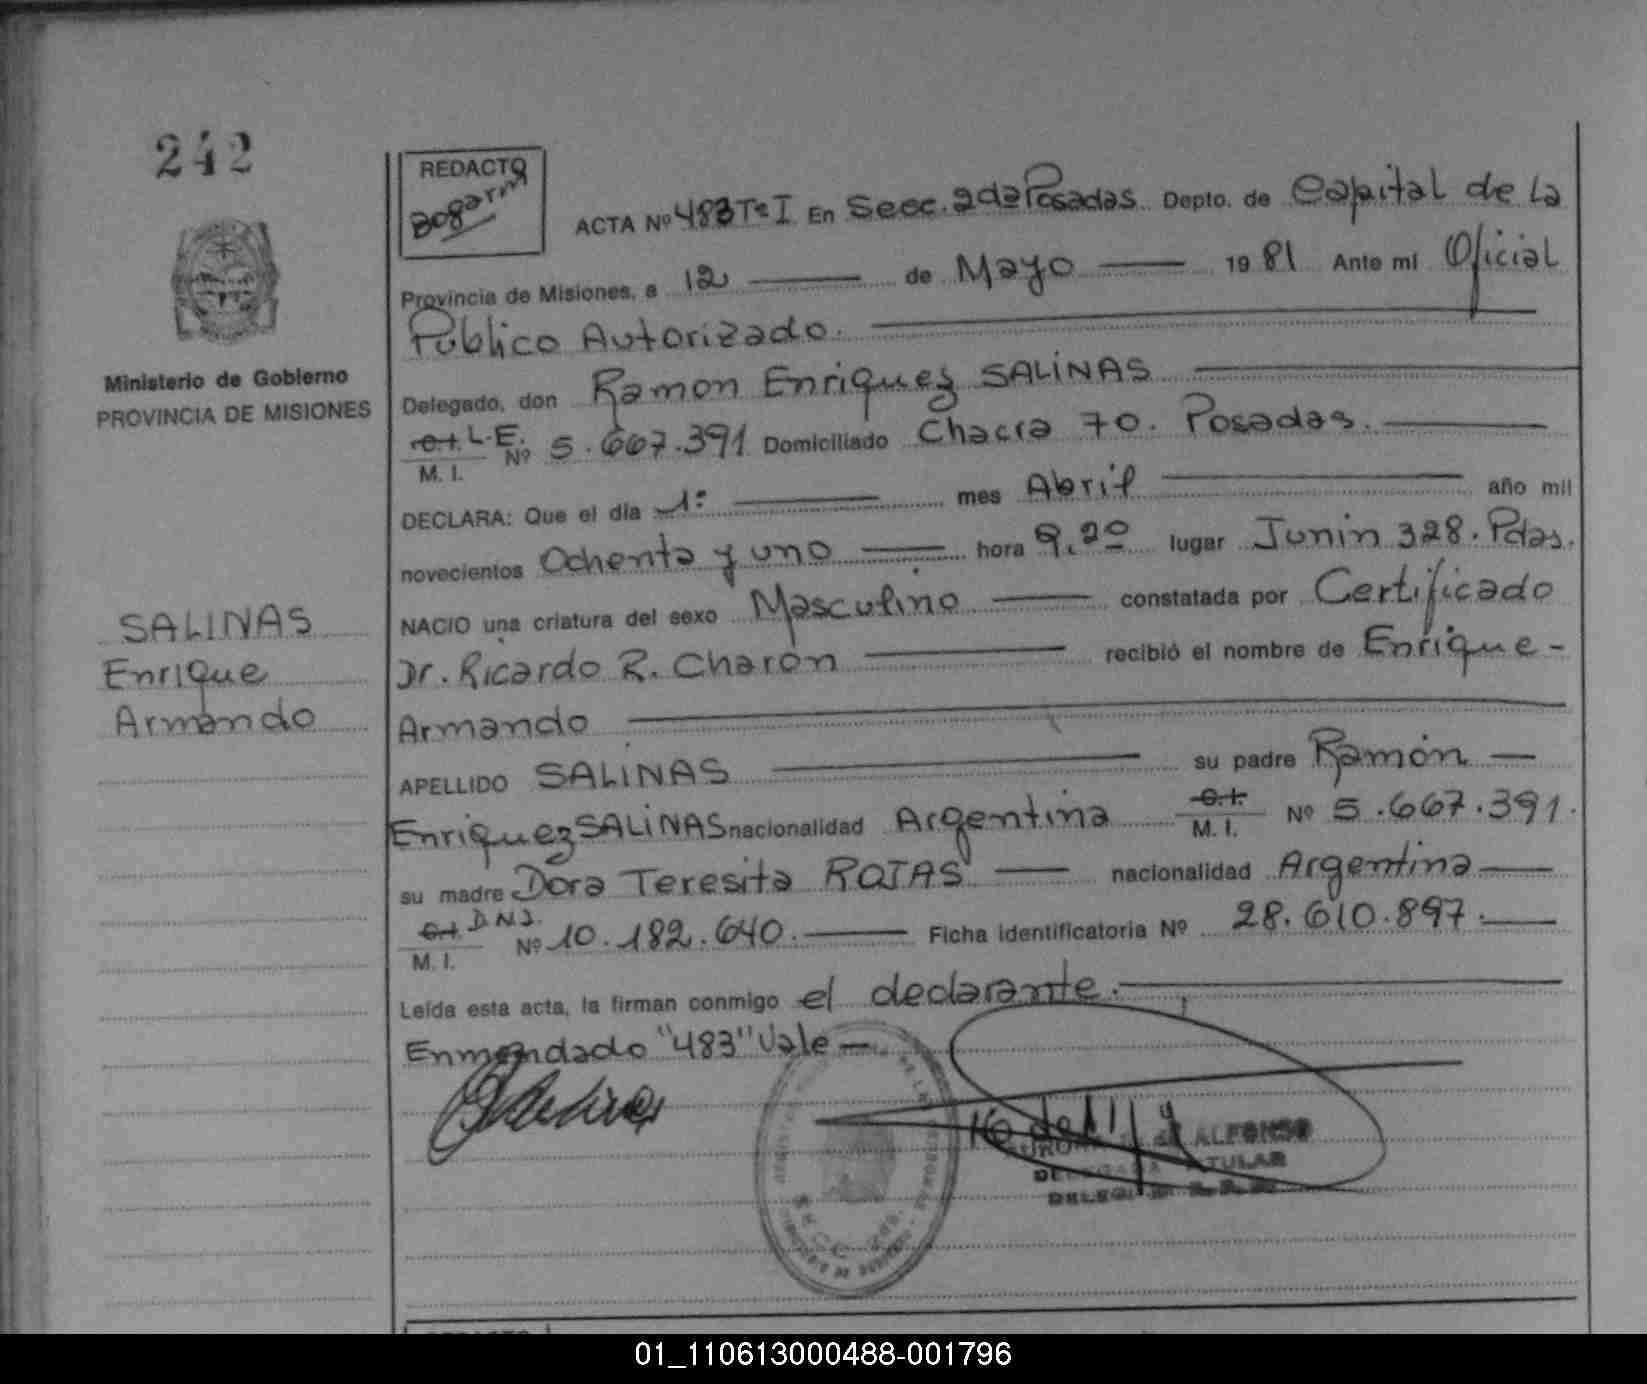 242
REDACTO
Bogarin
ACTA Nº 483 Tº I En Secc. 2da Posadas Depto. de Capital de La
Provincia de Misiones, a 12 de Mayo 1981 Ante mi Oficial
Público Autorizado.
Ministerio de Gobierno
PROVINCIA DE MISIONES
Delegado, don Ramon Enriquez SALINAS
C.I. L.E.
M. I. Nº 5.667.391 Domiciliado Chacra 70. Posadas.
DECLARA: Que el día 1º mes Abril año mil
novecientos Ochenta y uno hora 9,20 lugar Junin 328. Pdas.
NACIO una criatura del sexo Masculino constatada por Certificado
Dr. Ricardo R. Charón recibió el nombre de Enrique-
Armando
SALINAS
Enrique
Armando
APELLIDO SALINAS su padre Ramón
Enriquez SALINAS nacionalidad Argentina C.I. M. I. Nº 5.667.391.
su madre Dora Teresita ROJAS nacionalidad Argentina
C.I. D.N.I.
M. I. Nº 10.182.640. Ficha identificatoria Nº 28.610.897.
Leída esta acta, la firman conmigo el declarante.
Enmendado "483" Vale
ALFONSO
TITULAR
01_110613000488-001796